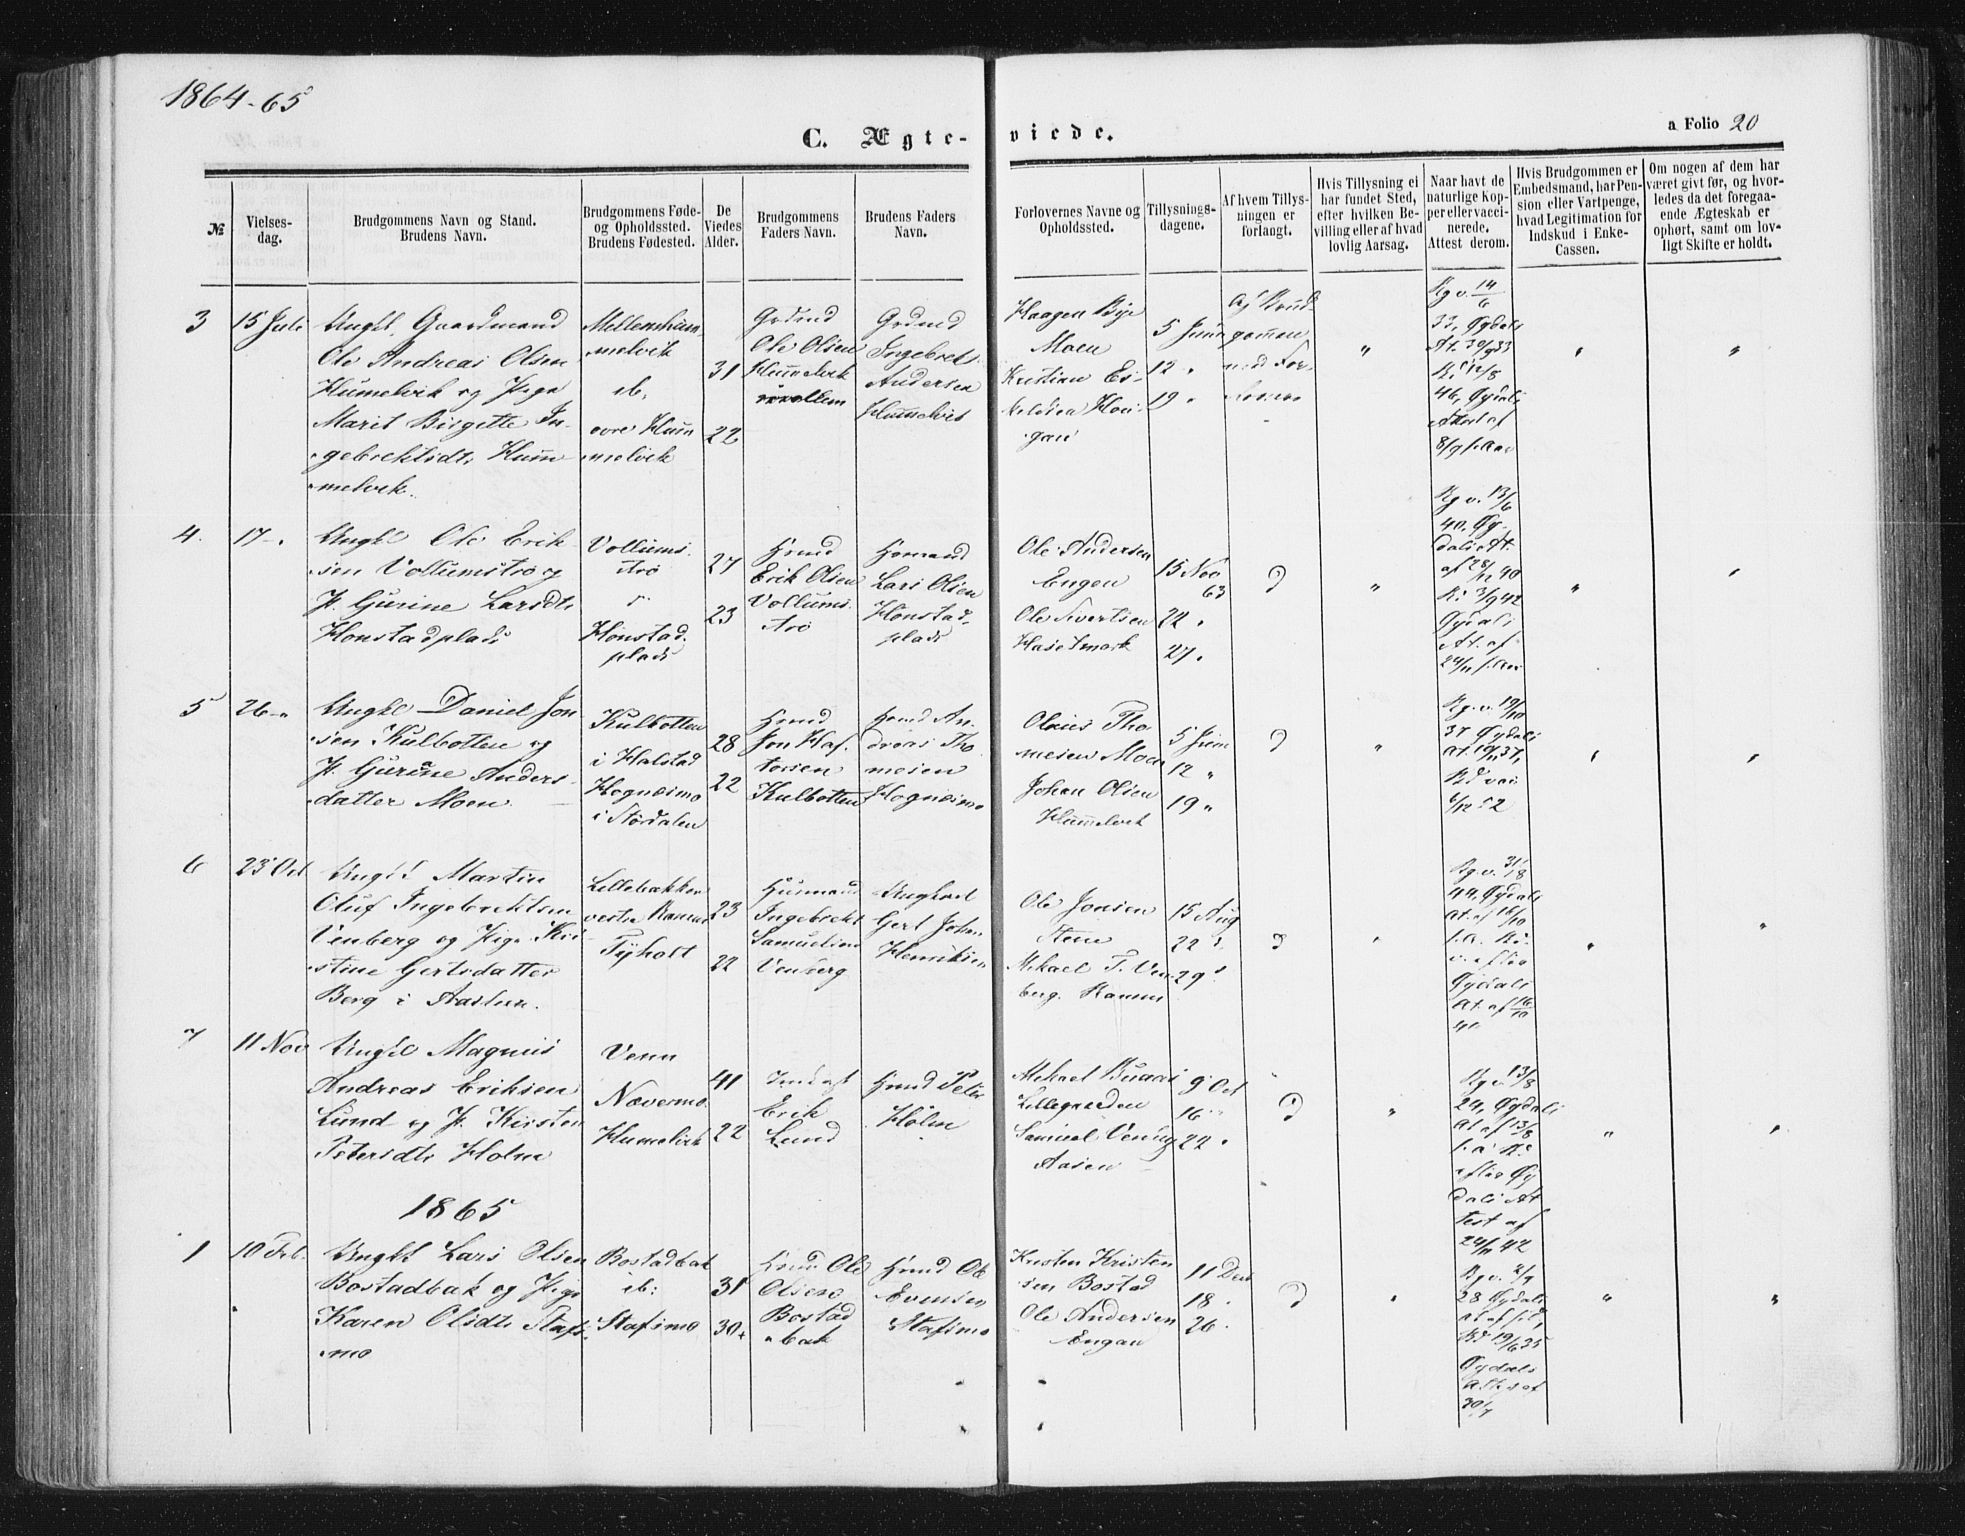 1864-65
C. Ægte-viede.
a Folio 20
№
Vielses-
dag.
Brudgommens Navn og Stand.
Brudens Navn.
Brudgommens Føde-
og Opholdssted.
Brudens Fødested.
De
Viedes
Alder.
Brudgommens
Faders Navn.
Brudens Faders
Navn.
Forlovernes Navne og
Opholdssted.
Tillysnings-
dagene.
Af hvem Tillys-
ningen er
forlangt.
Hvis Tillysning ei
har fundet Sted,
efter hvilken Be-
villing eller af hvad
lovlig Aarsag.
Naar havt de
naturlige Kop-
per eller vacci-
nerede.
Attest derom.
Hvis Brudgommen er
Embedsmand, har Pen-
sion eller Vartpenge,
hvad Legitimation for
Indskud i Enke-
Cassen.
Om nogen af dem har
været givt før, og hvor-
ledes da det foregaa-
ende Ægteskab er
ophørt, samt om lov-
ligt Skifte er holdt.
3
15 Juli
Ungkl. Gaardmand
Ole Andreas Olsen
Hummelvik og Pige
Marit Birgitte In-
gebrektsdt. Hum
melvik.
Mellemhum
melvik
ib.
øvre Hum
melvik
31
22
Grdmd
Ole Olsen
Hummelvik
mellem
Grdmd
Ingebret
Andersen
Hummelvik
Haagen Bye
Moen
Kristian Es-
kildsen Hou-
gan
5 Juni
12 "
19 "
Af Brud-
gommen
med For-
"
Bg v. 14/6
33, Øydals
At. 30/9 33
Bd 12/8
46, Øydals
Attest af
8/9 s. Aar
"
"
4.
17 "
Ungkl Ole Erik-
sen Vollumstrø og
P. Gurine Larsdt.
Honstadplads
Vollums-
trø
Honstad-
plads
27
23
Hmd
Erik Olsen
Vollums-
trø
Husmand
Lars Olsen
Honstad-
plads
Ole Andersen
Engen
Ole Sivertsen
Haselmork
15 Nov
63
22 "
27 "
"
Bg v. 13/6
40, Øy-
dals At.
af 28/12 40
Bd 3/9 42
Øydals
At. af
24/11 s. Aar
"
5
26 "
Ungkl Daniel Jon
sen Kulbotten og
P. Gurine Anders-
datter Moen.
Kulbotten
i Halstad
Hognesmo
i Størdalen
28
22
Hmd
Jon Haf-
torsen
Kulbotten
Hmd An-
dreas Tho
mesen
Hognesmo
Olaus Tho
mesen Moen
Johan Olsen
Hummelvik
5 Juni
12 "
19 "
"
Bg. v. 19/10
37 Øydals
At. 19/11 37,
Bd vac
6/12 52
"
"
6
23 Oct
Ungkl Martin
Oluf Ingebrektsen
Venberg og Pige Kri-
stine Gertsdatter
Berg i Aasten.
Lillebakken
vestre Ramm
Tyholt
23
22
Husmand
Ingebrekt
Samuelsen
Venberg
Ungkarl
Gert Johan
Henriksen
Ole Jonsen
Stene
Mikael T. Ven-
berg. Ramm
15 Aug
22 "
29 "
"
Bg v. 31/8
44, Øydals
At. af 16/10
s. A. Bd.
Øydals
At. af 16/10
"
"
7
11 Nov
Ungkl Magnus
Andreas Eriksen
Lund og P. Kirsten
Petersdt. Holm
Venn
Nævermo
Hummelvik
41
22
Erik
Lund
Hmd Peter
Holm
Mikael Buaas
Lillegaarden
Samuel Venberg
Aasen
9 Oct
16 "
22 "
"
Bg v. 13/8
24, Øydals
At af 13/8
s. a. Bd
efter Øy
dals At
test af
24/11 42
"
"
1865
1
10 Feb.
Ungkl Lars Olsen
Bostadbak og Pige
Karen Olsdt. Stafs-
mo
Bostadbak
ib:
Stafsmo
31
30
Hmd Ole
Olsen
Bostad
bak
Hmd Ole
Evensen
Stafsmo
Kristen Kristen
sen Bostad
Ole Andersen
Engan
11 Dec
18 "
26 "
"
Bg v. 2/9
28 Øydals
At af s. d.,
Bd 19/6 35
Øydals
Attest af
30/7
"
"